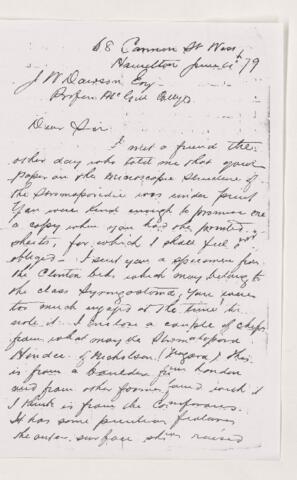 68 Cannon St West
Hamilton June 4th 79
J W Dawson Esq
Profr McGill College
Dear Sir
I met a friend the
other day who told me that your
paper on the Microscopic Structure of
the Stromatoporidae was under print
You were kind enough to promise me
a copy when you had the printed
sheets, for which I shall feel
obliged - I sent you a specimen from
the Clinton beds which may belong to
the class you were
too much engaged at the time to
note it. I enclose a couple of chips
from what may be the Stromatopora
Hindei of Nicholson (Niagara) This
is from a boulder from London
and from other found with it
I think is from the Corniferous.
It has some peculiar features
the outer surface raised